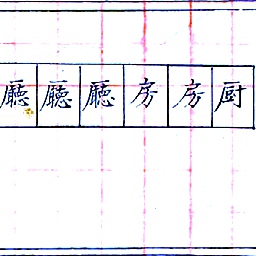 廳廳廳房房厨